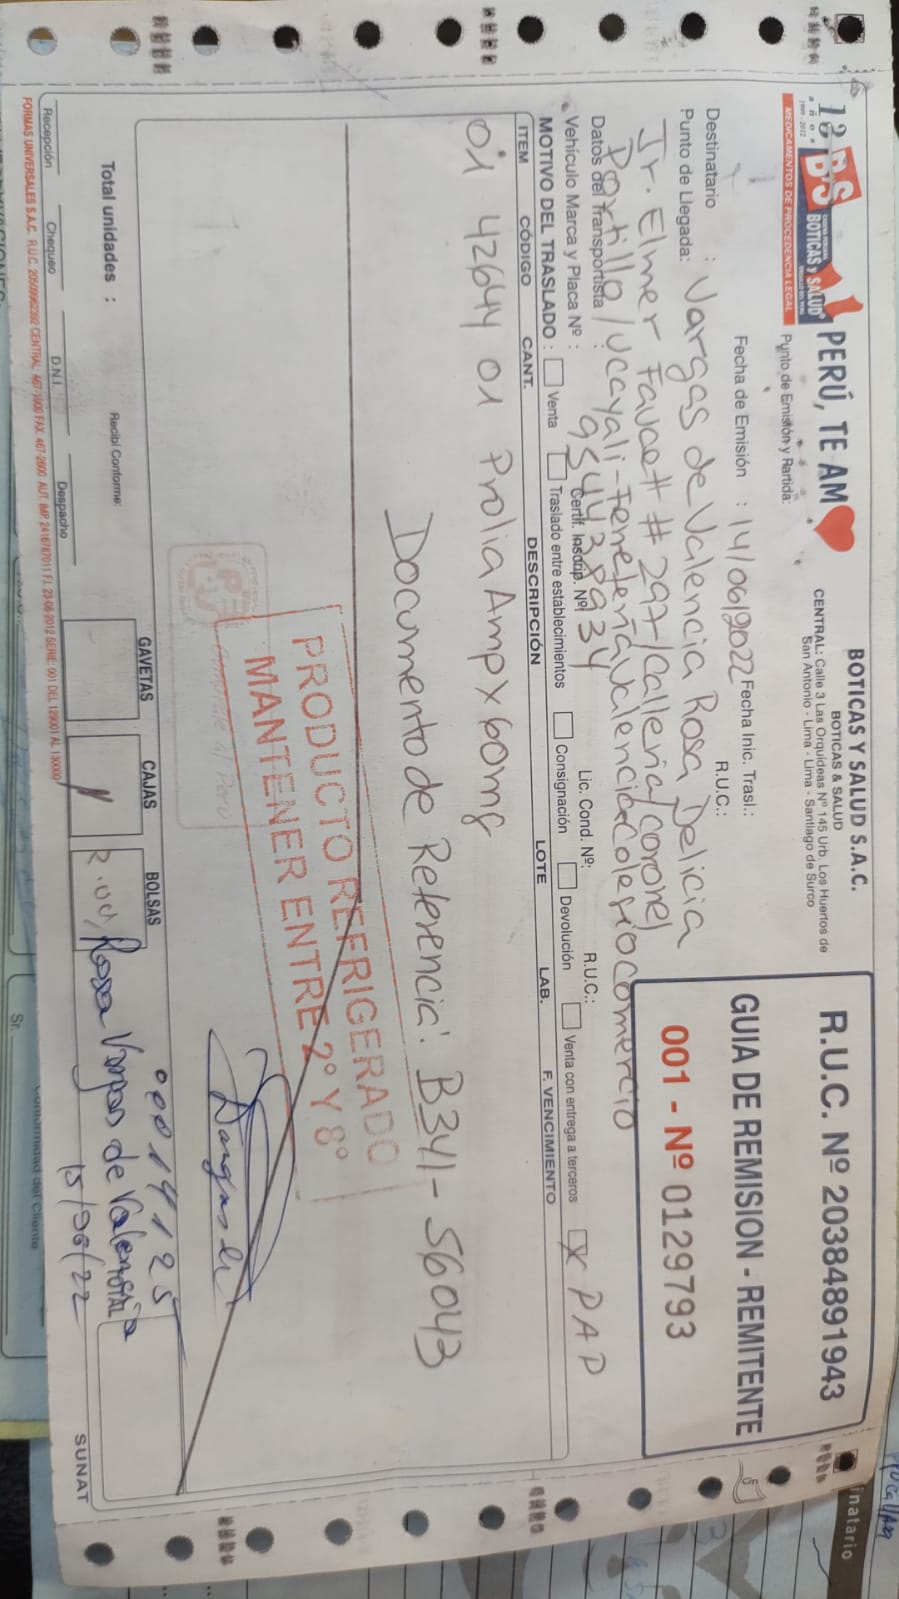 13 años BS BOTICAS y SALUD
1999 - 2012
MEDICAMENTOS DE PROCEDENCIA LEGAL
PERÚ, TE AM
BOTICAS Y SALUD S.A.C.
BOTICAS & SALUD
CENTRAL: Calle 3 Las Orquideas Nº 145 Urb. Los Huertos de
San Antonio - Lima - Lima - Santiago de Surco
Punto de Emisión y Partida:
R.U.C. Nº 20384891943
GUIA DE REMISION - REMITENTE
001 - Nº 0129793
Fecha de Emisión : 14/06/2022 Fecha Inic. Trasl.:
Destinatario : Vargas de Valencia Rosa Delicia R.U.C.:
Punto de Llegada:
Jr. Elmer Faucett # 297/Calleria/coronel
Portillo/Ucayali - Ferretería Valencia-Colegio Comercio
Datos del Transportista : 954438934 R.U.C.:
Vehículo Marca y Placa Nº : Certif. Inscrip. Nº Lic. Cond. Nº:
MOTIVO DEL TRASLADO : Venta Traslado entre establecimientos Consignación Devolución Venta con entrega a terceros X PAP
ITEM CÓDIGO CANT. DESCRIPCIÓN LOTE LAB. F. VENCIMIENTO
01 42644 01 Prolia Amp x 60mg
Documento de Referencia: B341-56043
PRODUCTO REFRIGERADO
MANTENER ENTRE 2º Y 8º
Total unidades :
Recibí Conforme:
GAVETAS CAJAS BOLSAS
00014125
Rosa Vargas de Valencia
TOTAL
15/06/22
Recepción Chequeo D.N.I. Despacho
SUNAT
FORMAS UNIVERSALES S.A.C. R.U.C. 20509962392 CENTRAL: 467-1900 FAX: 467-2600 AUT. IMP. 2416787011 F.I. 23-06-2012 SERIE: 001 DEL 129001 AL 130000
Sr.
Conformidad del Cliente
inatario